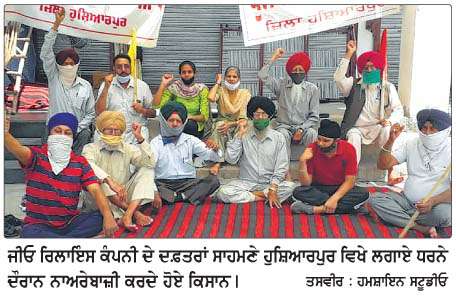 ਜ਼ਿਲਾ ਹੁਸ਼ਿਆਰਪੁਰ
ਜ਼ਿਲਾ ਹੁਸ਼ਿਆਰਪੁਰ
ਜੀਓ ਰਿਲਾਇੰਸ ਕੰਪਨੀ ਦੇ ਦਫ਼ਤਰਾਂ ਸਾਹਮਣੇ ਹੁਸ਼ਿਆਰਪੁਰ ਵਿਖੇ ਲਗਾਏ ਧਰਨੇ
ਦੌਰਾਨ ਨਾਅਰੇਬਾਜ਼ੀ ਕਰਦੇ ਹੋਏ ਕਿਸਾਨ।
ਤਸਵੀਰ : ਹਮਸ਼ਾਇਨ ਸਟੂਡੀਓ